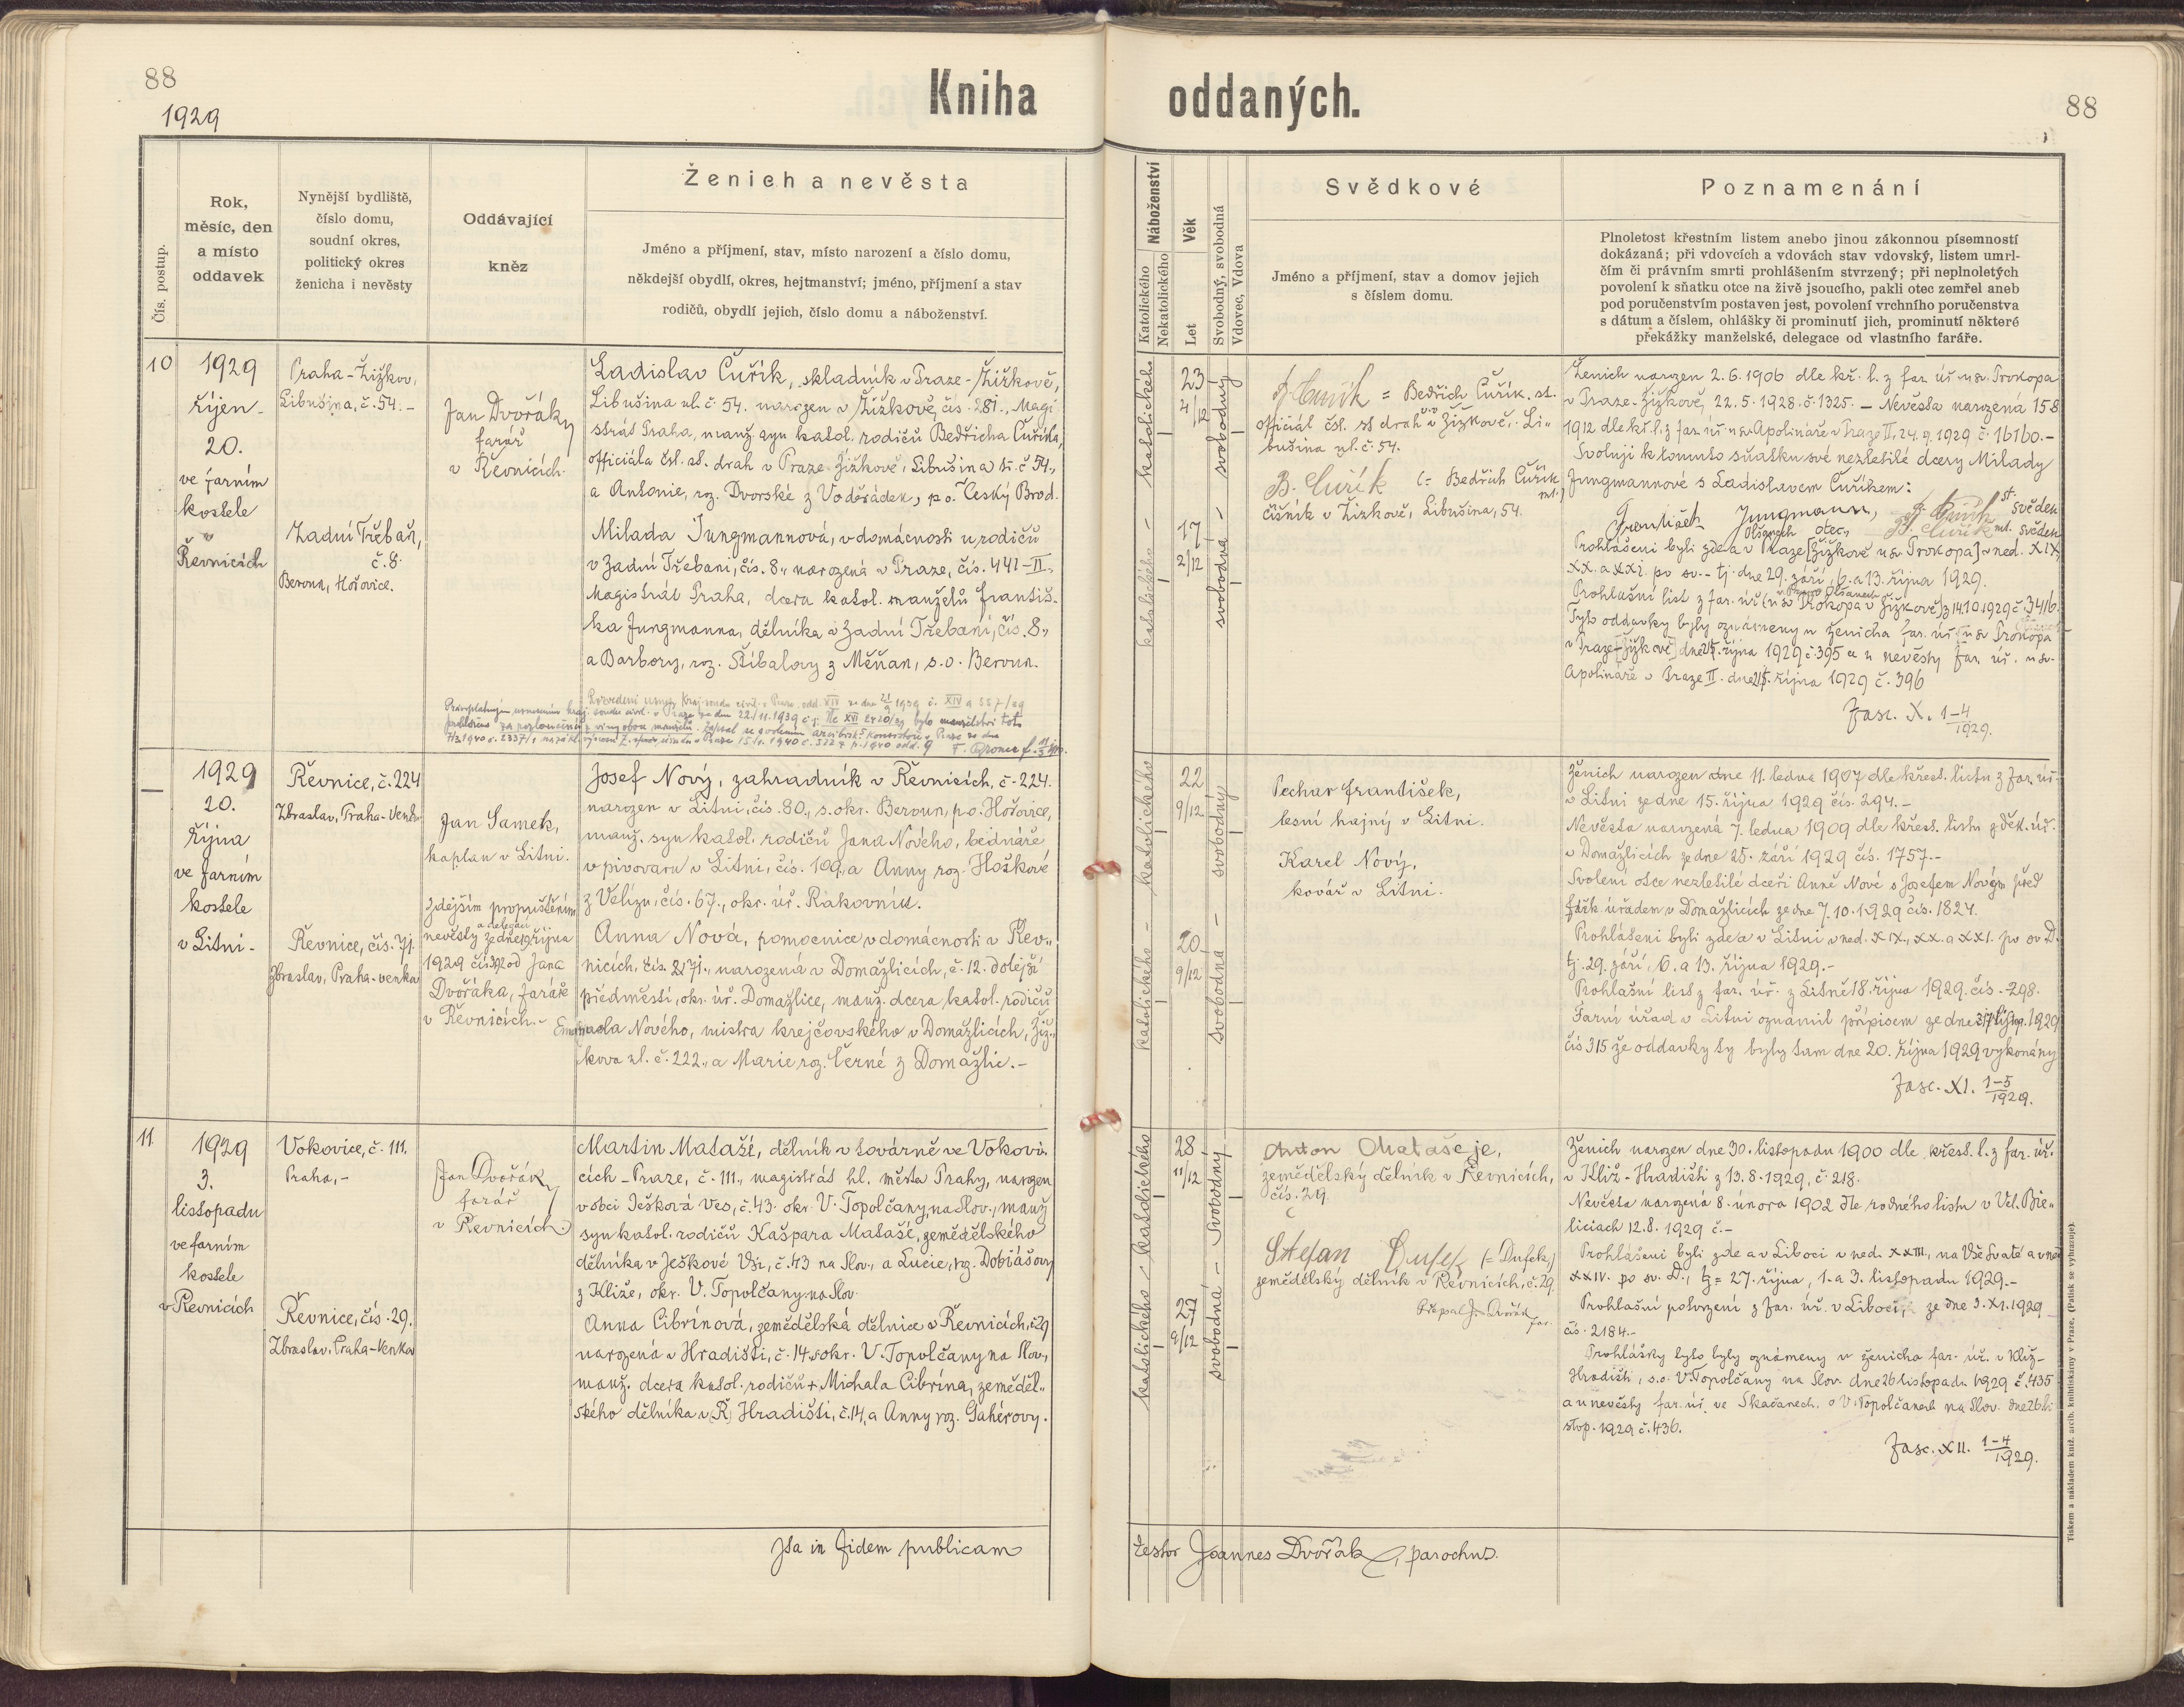 88
1929
Kniha oddaných.
88
Čís. postup.
Rok,
měsíc, den
a místo
oddavek
Nynější bydliště,
číslo domu,
soudní okres,
politický okres
ženicha i nevěsty
Oddávající
kněz
Ženich a nevěsta
Jméno a příjmení, stav, místo narození a číslo domu,
někdejší obydlí, okres, hejtmanství; jméno, příjmení a stav
rodičů, obydlí jejich, číslo domu a náboženství.
Náboženství
Katolického
Nekatolického
Věk
Let
Svobodný, svobodná
Vdovec, Vdova
Svědkové
Jméno a příjmení, stav a domov jejich
s číslem domu.
Poznamenání
Plnoletost křestním listem anebo jinou zákonnou písemností
dokázaná; při vdovcích a vdovách stav vdovský, listem umrl-
čím či právním smrti prohlášením stvrzený; při neplnoletých
povolení k sňatku otce na živě jsoucího, pakli otec zemřel aneb
pod poručenstvím postaven jest, povolení vrchního poručenstva
s dátum a číslem, ohlášky či prominutí jich, prominutí některé
překážky manželské, delegace od vlastního faráře.
10
1929
říjen
20.
ve farním
kostele
v
Řevnicích
Praha-Žižkov,
Libušina, č. 54.-
Zadní Třebaň,
č. 8.
Beroun, Hořovice.
Jan Dvořák,
farář
v Řevnicích.
Ladislav Čuřík, skladník v Praze-Žižkově,
Libušina ul. č. 54. narozen v Žižkově, čís. 281., Magi
strát Praha, manž. syn katol. rodičů Bedřicha Čuříka,
officiála čsl. st. drah v Praze-Žižkově, Libušina tř. č 54.,
a Antonie, roz. Dvorské z Voděrádek, p.o. Český Brod.
Milada Jungmannová, v domácnosti u rodičů
v Zadní Třebani, čís. 8., narozená v Praze, čís. 441-II.,
Magistrát Praha, dcera katol. manželů Františ-
ka Jungmanna, dělníka v Zadní Třebani, čís. 8.,
a Barbory, roz. Šíbalovy z Měňan, s.o. Beroun.
katolického - katolického
23
4/12
17
2/12
svobodný - svobodná
B Čuřík = Bedřich Čuřík. st.
officiál čsl. st drah v Žižkově, Li-
bušina ul. č. 54.
B. Čuřík (= Bedřich Čuřík
ml.)
číšník v Žižkově, Libušina, 54.
Ženich narozen 2.6.1906 dle kř. l. z far. úř. u sv. Prokopa
v Praze-Žižkově, 22.5.1928. č. 1325. - Nevěsta narozená 15.8
1912 dle kř. l. z far. úř. u sv. Apolináře v Praze II, 24.9.1929 č. 16160.-
Svoluji k tomuto sňatku své nezletilé dcery Milady
Jungmannové s Ladislavem Čuříkem:
František Jungmann, otec, B. Čuřík st. svědek
B. Čuřík ml. svědek
Prohlášeni byli zde a v Praze [Žižkově u sv. Prokopa] v ned. XIX,
XX. a XXI. po sv. - tj. dne 29. září, 6. a 13. října 1929.
Prohlašní list z far. úř. (u sv Prokopa v Žižkově) z 14.10 1929 č. 3416.
Tyto oddavky byly oznámeny u ženicha far. úř. u sv Prokopa
v Praze-[Žižkově] dne 25. října 1929 č. 395 a u nevěsty far. úř. u sv.
Apolináře v Praze II. dne 25. října 1929 č. 396
Fasc. X. 1-4
1929.
—
1929
20.
října
ve farním
kostele
v Litni-
Řevnice, č. 224
Zbraslav, Praha-Venk.
Řevnice, čís. 71.
Zbraslav, Praha-venkov
Jan Samek,
kaplan v Litni.
Zdejším propuštěním
a delegací
nevěsty ze dne 19 října
1929 čís 392 od Jana
Dvořáka, faráře
v Řevnicích.-
Josef Nový, zahradník v Řevnicích, č-224.
narozen v Litni, čís. 80., s. okr. Beroun, p.o. Hořovice,
manž. syn katol. rodičů Jana Nového, bednáře
v pivovaru v Litni, čís. 109., a Anny roz. Hoškové
z Velízu, čís. 67., okr. úř. Rakovník.
Anna Nová, pomocnice v domácnosti v Řev„
nicích, čís. 71., narozená v Domažlicích, č. 12. dolejší
předměstí, okr. úř. Domažlice, manž. dcera katol. rodičů
Emanuela Nového, mistra krejčovského v Domažlicích, Žiž„
kova ul. č. 222., a Marie roz. Černé z Domažlic.-
katolického - katolického
22
9/12
20
9/12
svobodný - svobodná
Pechar František,
lesní hajný v Litni.
Karel Nový,
kovář v Litni.
Ženich narozen dne 11. ledna 1907 dle křest. listu z far. úř.
v Litni ze dne 15. října 1929 čís. 294.-
Nevěsta narozená 7. ledna 1909 dle křest. listu z děk. úř.
v Domažlicích ze dne 25. září 1929 čís. 1757.-
Svolení otce nezletilé dceři Anně Nové s Josefem Novým před
far. úřadem v Domažlicích ze dne 7.10.1929 čís. 1824.
Prohlášeni byli zde a v Litni v ned. XIX., XX. a XXI. po sv D.
tj. 29. září, 6. a 13. října 1929.-
Prohlašní list z far. úř. z Litně 18. října 1929. čís.-298.
Farní úřad v Litni oznámil přípisem ze dne listop. 1929
čís 315 že oddavky ty byly tam dne 20. října 1929 vykonány
Fasc. XI. 1-5
1929.
11
1929
3.
listopadu
ve farním
kostele
v Řevnicích
Vokovice, č. 111.
Praha,-
Řevnice, čís. 29.
Zbraslav, Praha-Venkov
Jan Dvořák,
farář
v Řevnicích.
Martin Mataší, dělník v továrně ve Vokovi-
cích-Praze, č. 111., magistrát hl. města Prahy, narozen
v obci Ješková Ves, č. 43. okr. V. Topolčany, na Slov., manž
syn katol. rodičů Kašpara Mataší, zemědělského
dělníka v Ješkové Vsi, č. 43 na Slov., a Lucie, roz. Dobiášovy
z Klíže, okr. V. Topolčany na Slov.
Anna Cibrínová, zemědělská dělnice v Řevnicích, č. 29
narozená v Hradišti, č. 14. s okr. V. Topolčany na Slov.,
manž. dcera katol. rodičů + Michala Cibrína, zeměděl„
ského dělníka v Hradišti, č. 14, a Anny roz. Gahérovy.
katolického - katolického
28
11/12
27
9/12
svobodný - svobodná
Anton Matašeje,
zemědělský dělník v Řevnicích,
čís. 29
Štefan Dufek (= Dufek)
zemědělský dělník v Řevnicích, č. 29.
Přepsal J. Dvořák
far.
Ženich narozen dne 30. listopadu 1900 dle křest. l. z far. úř.
v Klíž-Hradišti z 13.8.1929, č. 218.
Nevěsta narozená 8. února 1902 dle rodného listu v Vel. Bie„
liciach 12.8. 1929 č.-
Prohlášeni byli zde a v Liboci v ned. XXIII., na Vše Svaté a v ned
XXIV. po sv. D., tj = 27. října, 1. a 3. listopadu 1929.-
Prohlašní potvrzení z far. úř. v Liboci, ze dne 3.XI.1929
čís. 2184.-
Prohlášky tyto byly oznámeny u ženicha far. úř. v Klíž-
Hradišti, s.o. V. Topolčany na Slov. dne 26 listopadu 1929 č. 435
a u nevěsty far. úř. ve Skačanech, o V. Topolčanech na Slov. dne 26. li
stop. 1929 č. 436.
Fasc. XII. 1-4
1929.
Ita in fidem publicam
testor Joannes Dvořák, parochus.
Tiskem a nákladem kníž. arcib. knihtiskárny v Praze. (Patisk se vyhrazuje)